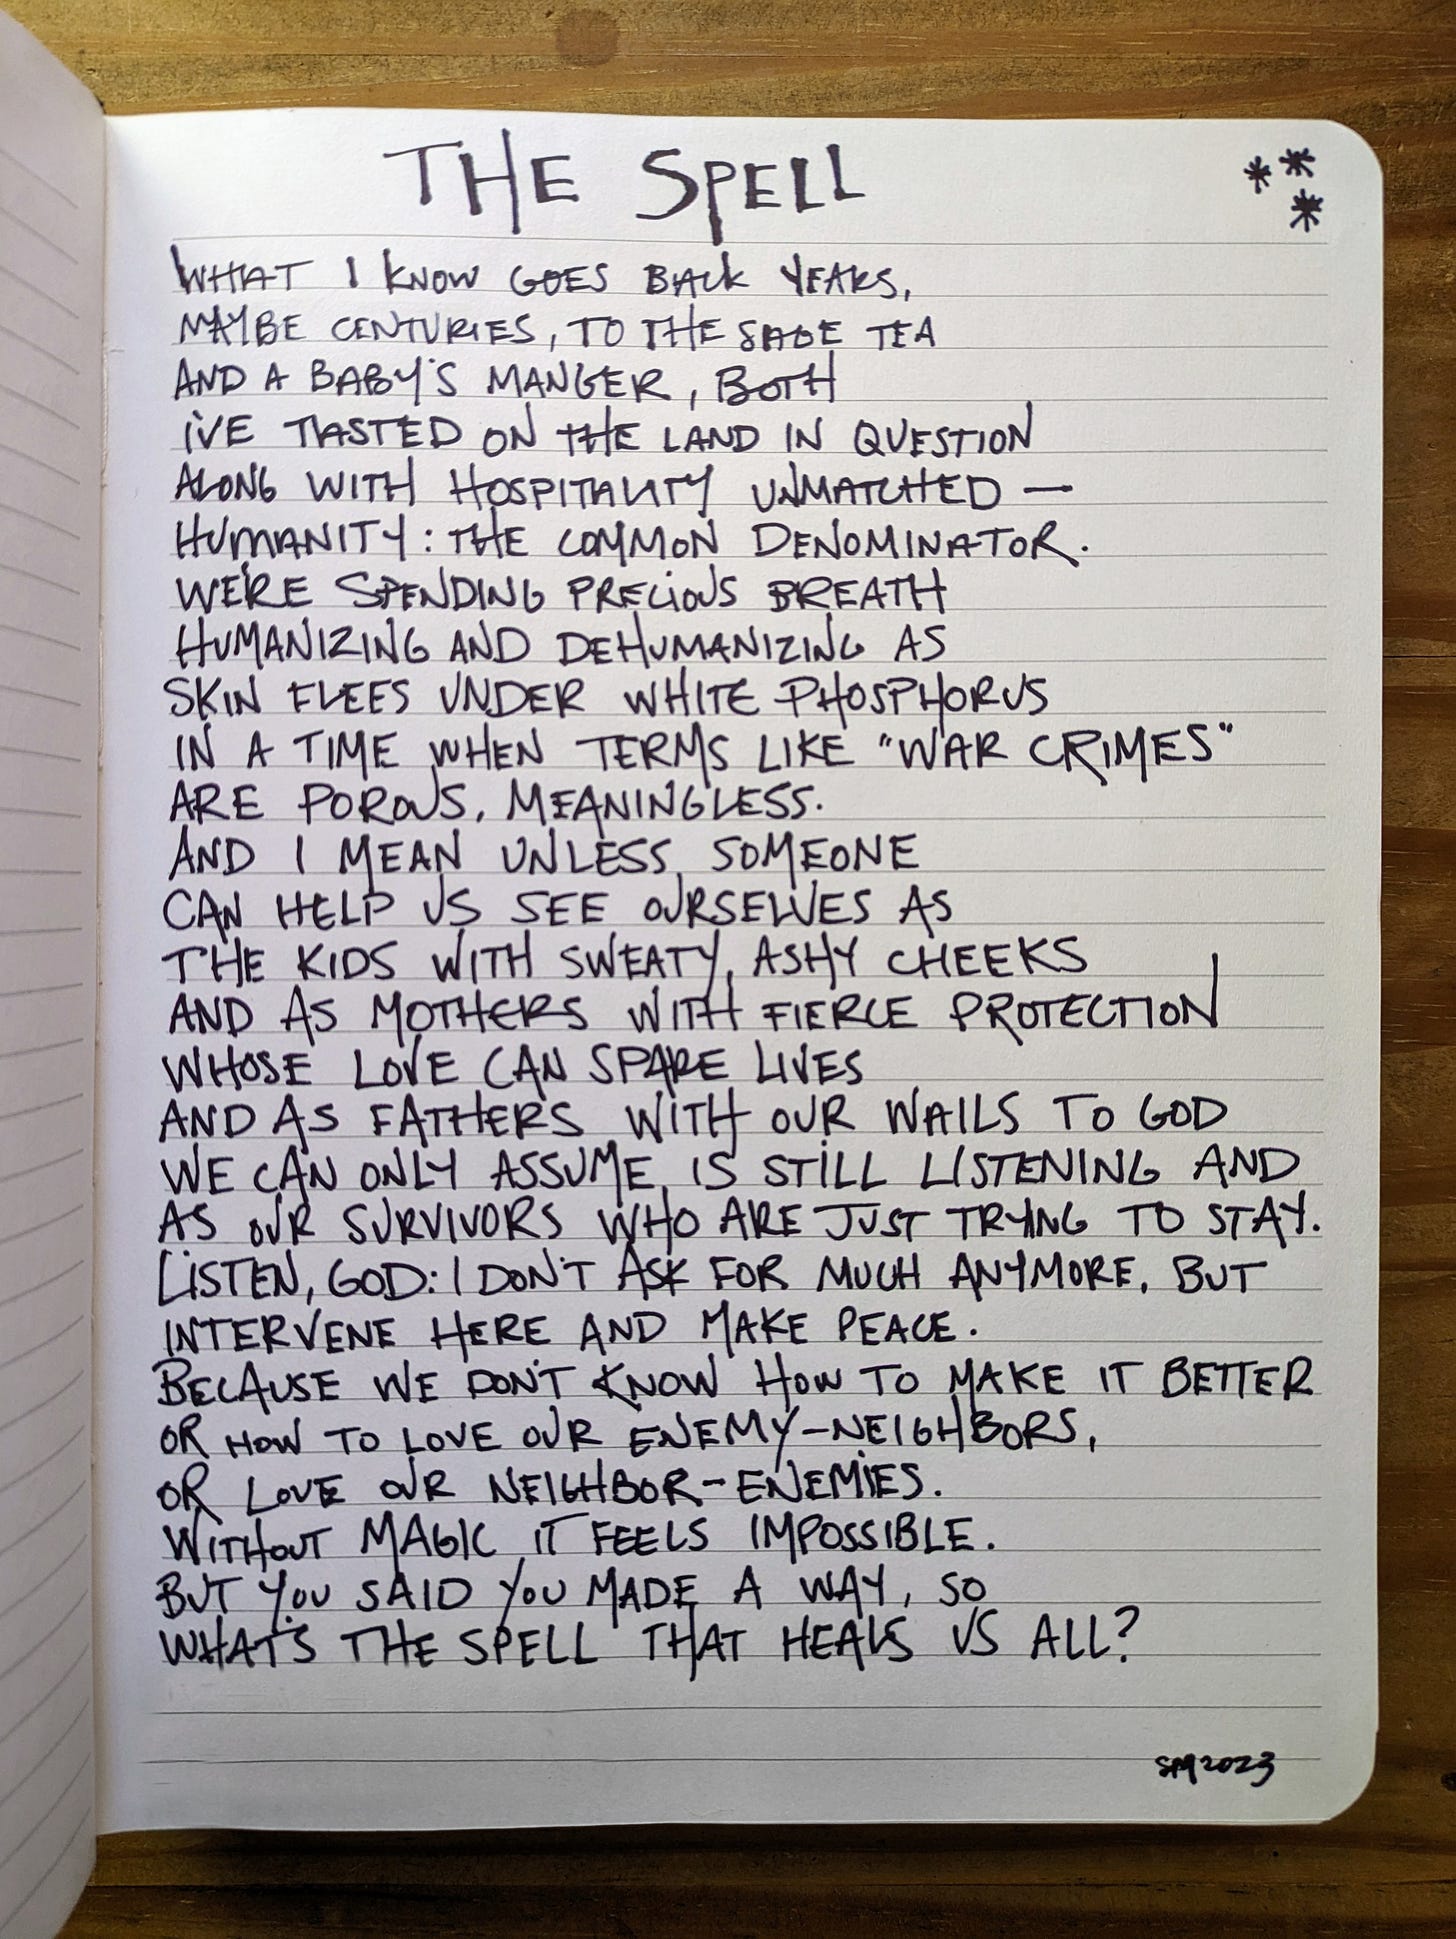 THE SPELL
WHAT I KNOW GOES BACK YEARS,
MAYBE CENTURIES, TO THE SAGE TEA
AND A BABY'S MANGER, BOTH
I'VE TASTED ON THE LAND IN QUESTION
ALONG WITH HOSPITALITY UNMATCHED —
HUMANITY: THE COMMON DENOMINATOR.
WE'RE SPENDING PRECIOUS BREATH
HUMANIZING AND DEHUMANIZING AS
SKIN FLEES UNDER WHITE PHOSPHORUS
IN A TIME WHEN TERMS LIKE "WAR CRIMES"
ARE POROUS, MEANINGLESS.
AND I MEAN UNLESS SOMEONE
CAN HELP US SEE OURSELVES AS
THE KIDS WITH SWEATY, ASHY CHEEKS
AND AS MOTHERS WITH FIERCE PROTECTION
WHOSE LOVE CAN SPARE LIVES
AND AS FATHERS WITH OUR WAILS TO GOD
WE CAN ONLY ASSUME IS STILL LISTENING AND
AS OUR SURVIVORS WHO ARE JUST TRYING TO STAY.
LISTEN, GOD: I DON'T ASK FOR MUCH ANYMORE, BUT
INTERVENE HERE AND MAKE PEACE.
BECAUSE WE DON'T KNOW HOW TO MAKE IT BETTER
OR HOW TO LOVE OUR ENEMY-NEIGHBORS,
OR LOVE OUR NEIGHBOR-ENEMIES.
WITHOUT MAGIC IT FEELS IMPOSSIBLE.
BUT YOU SAID YOU MADE A WAY, SO
WHAT'S THE SPELL THAT HEALS US ALL?
2023